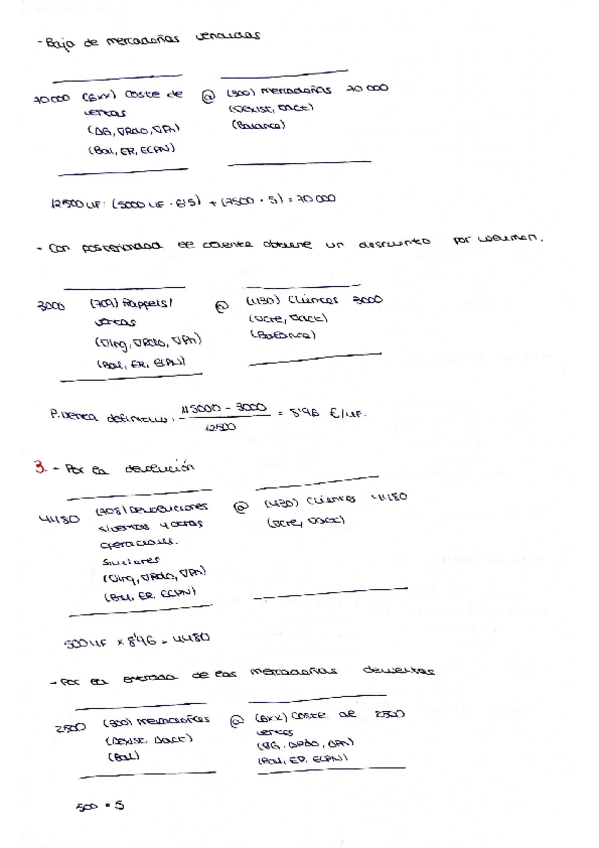 - Baja de mercadeñas vendidas
70000 (6xx) Coste de @ (300) mercadeñas 70 000
ventas (∇exist, ∇act)
(ΔG, ∇Rdo, ∇Pn) (Balance)
(Bal, ER, ECPN)
12500 uf: (5000 uf · 6'5) + (7500 · 5) = 70 000
- Con posterioridad el cliente obtiene un descuento por volumen.
3000 (709) Rappels/ @ (430) Clientes 3000
ventas (∇cre, ∇act)
(∇Ing, ∇Rdo, ∇Pn) (Balance)
(Bal, ER, ECPN)
P. venta definitivo: 115000 - 3000 / 12500 = 8'96 €/uf.
3. - Por la devolución
4480 (708) Devoluciones @ (430) Clientes 4480
s/ventas y otras (∇cre, ∇act)
operaciones.
Similares
(∇Ing, ∇Rdo, ∇Pn)
(Bal, ER, ECPN)
500 uf x 8'96 = 4480
- Por la entrada de las mercadeñas devueltas
2500 (300) mercadeñas @ (6xx) Coste de 2500
(Δexist, Δact) ventas
(Bal) (∇G, ΔRdo, ΔPn)
(Bal, ER, ECPN)
500 · 5